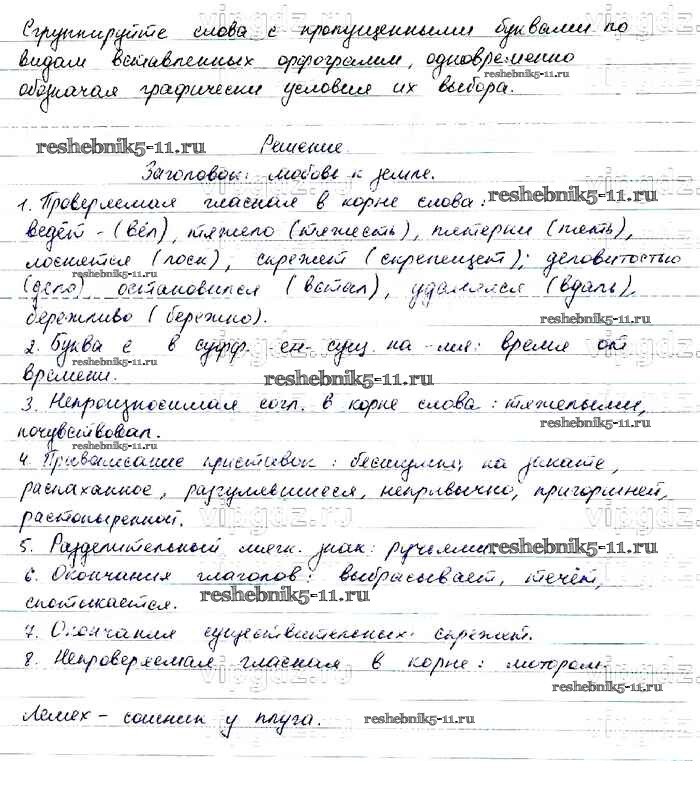 Сгруппируйте слова с пропущенными буквами по
видам вставленных орфограмм, одновременно
reshebnik5-11.ru
обозначая графически условия их выбора.
reshebnik5-11.ru Решение.
Заголовок: любовь к земле.
reshebnik5-11.ru
1. Проверяемая гласная в корне слова:
ведёт - (вёл), тяжело (тяжесть), пятерни (пять),
лоснется (лоск), скрежет (скрепещет); деловитостью
reshebnik5-11.ru
(дело) остановился (встал), удалялся (вдаль),
бережливо (бережно). reshebnik5-11.ru
2. Буква е в суфф. -ен- сущ. на -мя: время от
времени. reshebnik5-11.ru
3. Непроизносимая согл. в корне слова: тяжелыми,
почувствовал. reshebnik5-11.ru
4. Правописание приставок: бесшумны, на закате,
распаханное, разгулявшиеся, непривычно, пригоршней,
растопыренной.
5. Разделительный мягк. знак: ручьями reshebnik5-11.ru
6. Окончания глаголов: выбрасывает, течёт,
спотыкается. reshebnik5-11.ru
7. Окончания существительных: скрежет.
8. Непроверяемая гласная в корне: мотором.
reshebnik5-11.ru
Лемех - сошник у плуга. reshebnik5-11.ru
vipgdz.ru